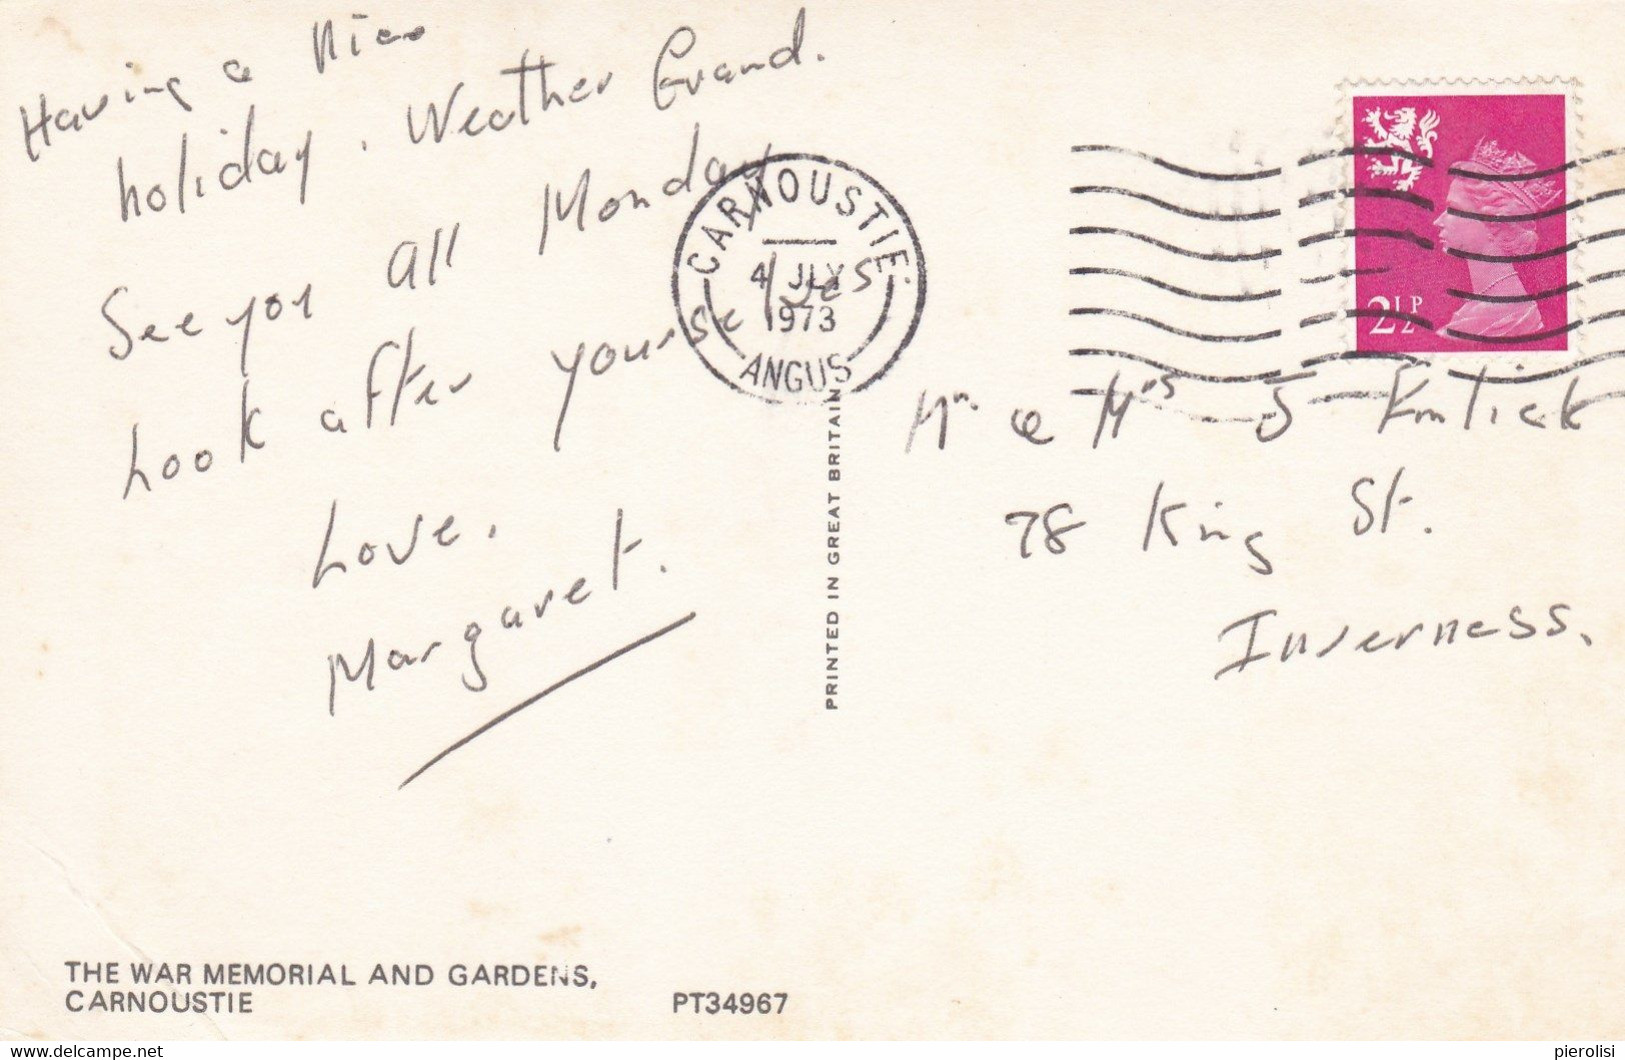 Having a nice
holiday. Weather Grand.
See you all Monday
Look after yourselves
Love.
Margaret.
CARNOUSTIE
4 JLY
1973
ANGUS
2½P
Mr & Mrs J
78 King St.
Inverness.
PRINTED IN GREAT BRITAIN
THE WAR MEMORIAL AND GARDENS,
CARNOUSTIE
PT34967
delcampe.net
pierolisi